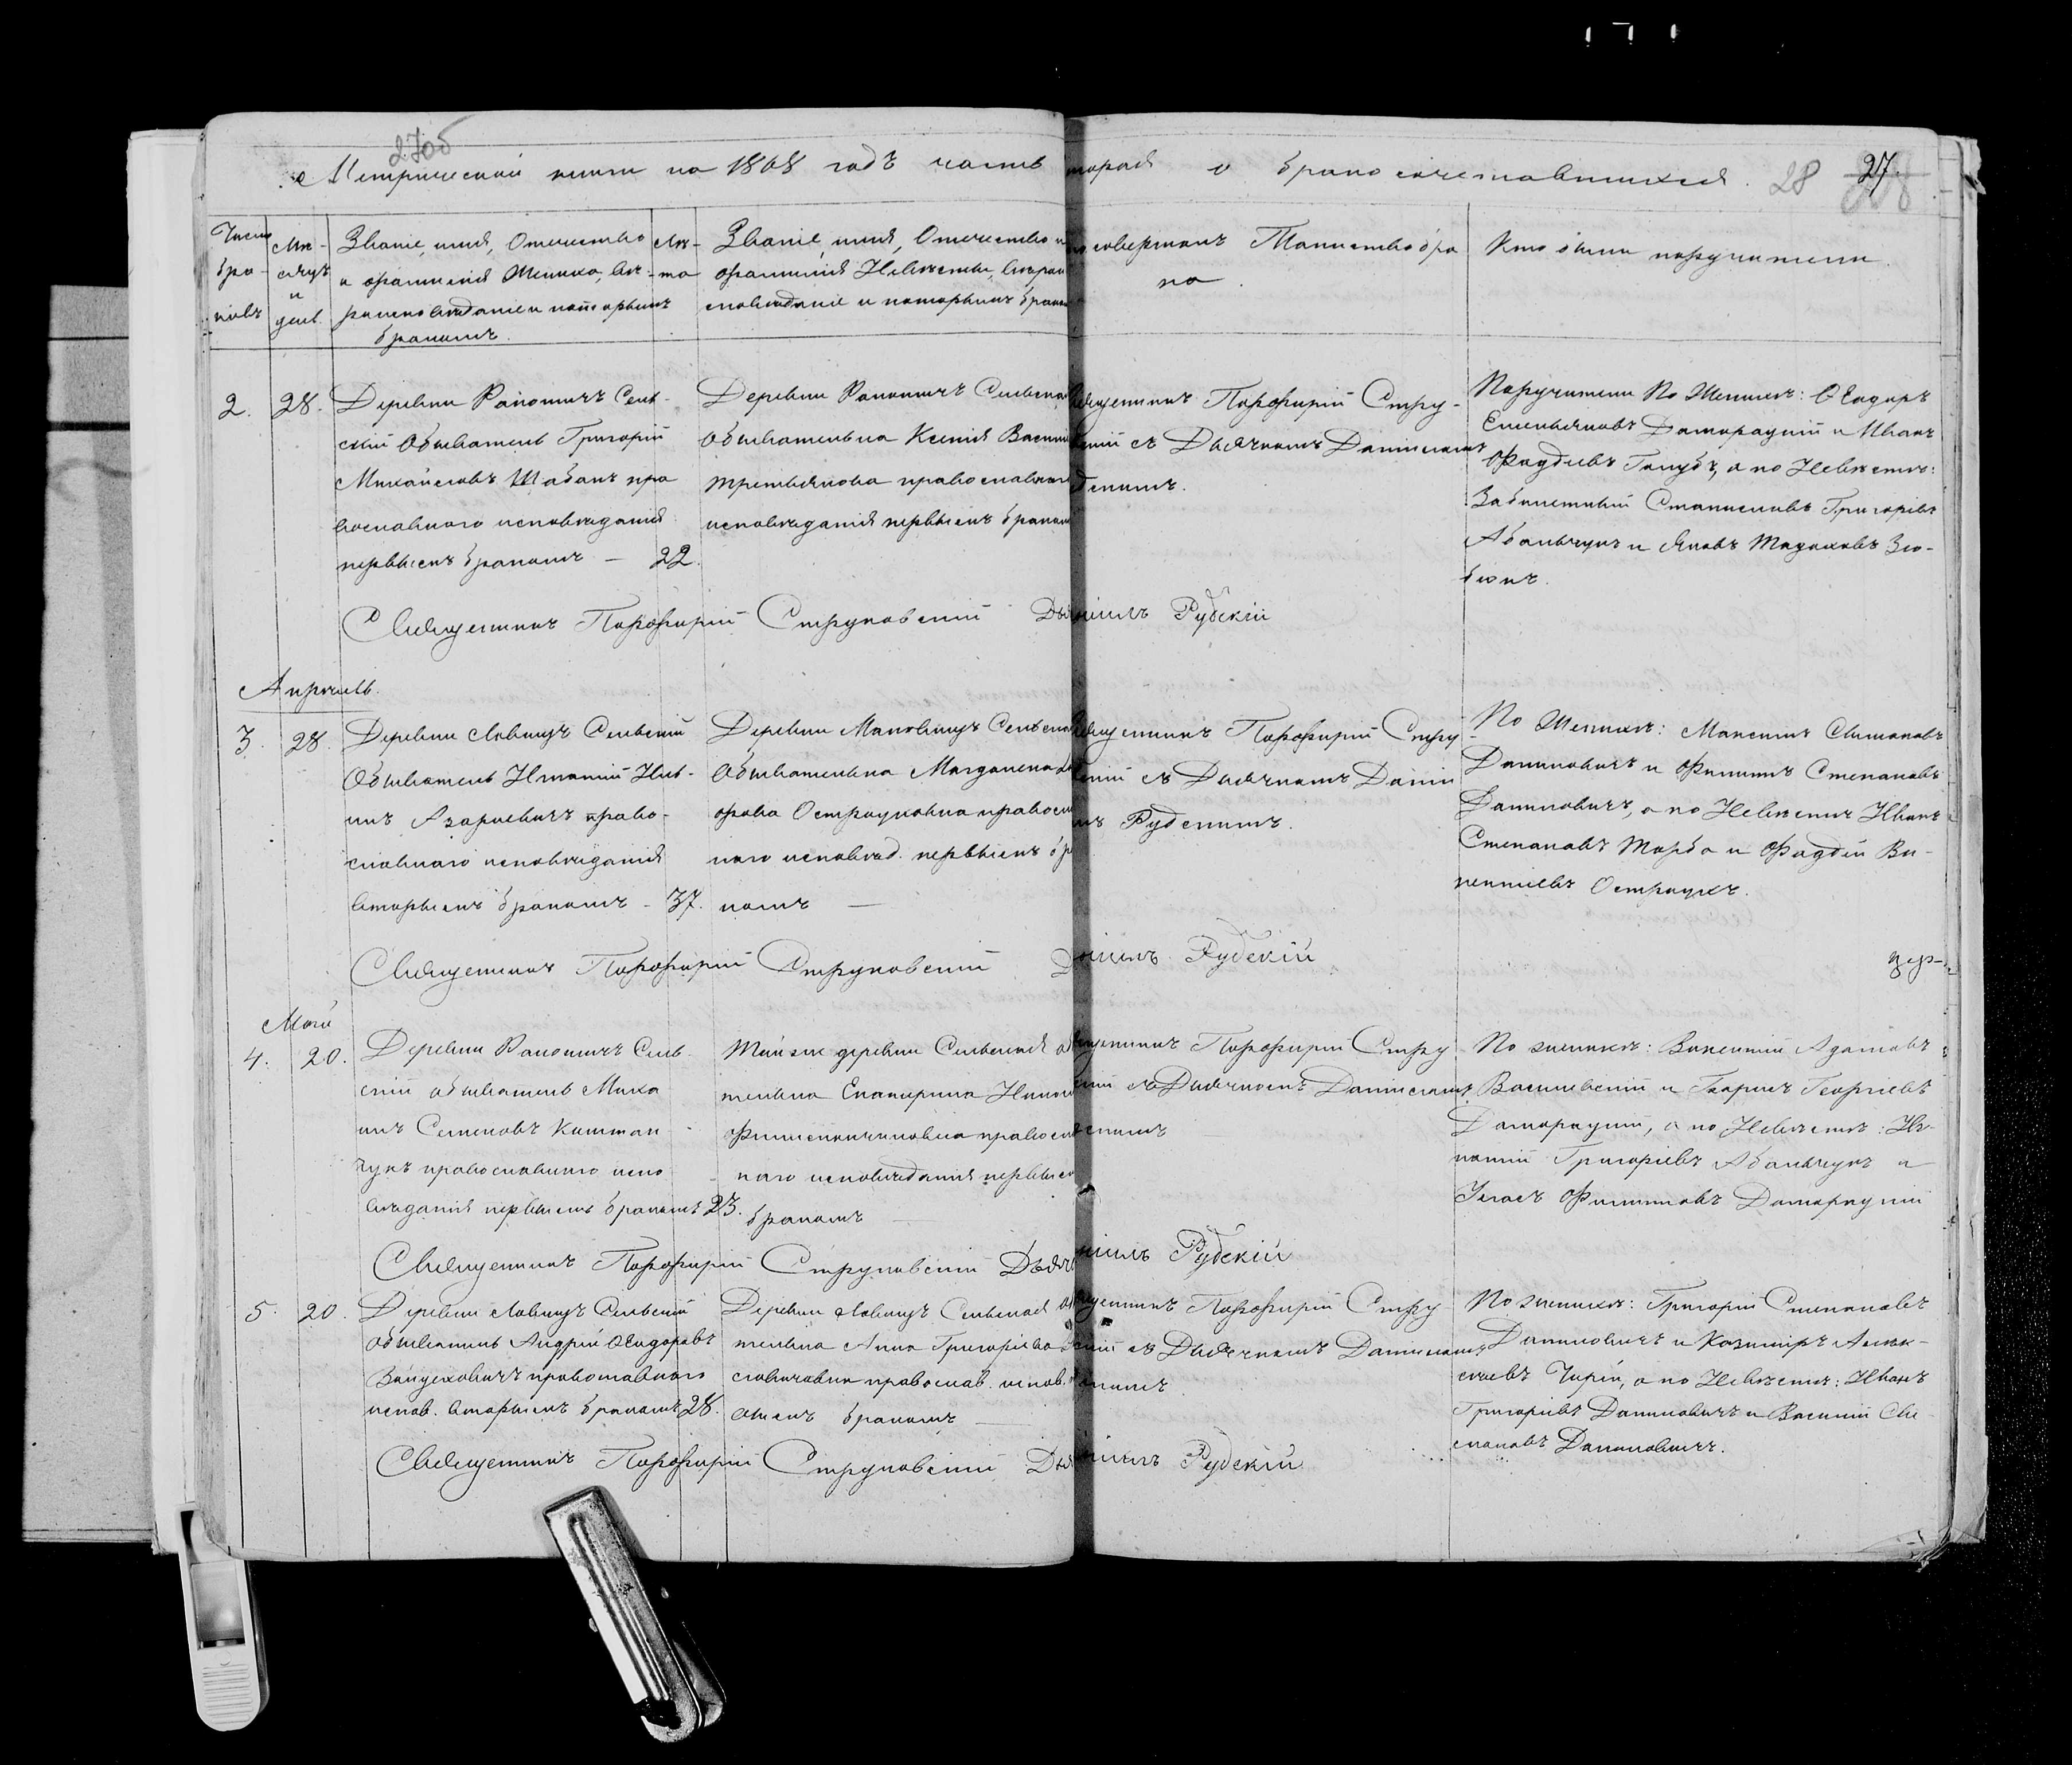 27об
Метрической книги на 1868 годъ часть
торая о бракосочетавшихся. 28 27.
Число бра-ковъ
Мѣ-сяцъ и день
Званіе, имя, Отечество
и фамилія Жениха, вѣ-
роисповѣданіе и которымъ
бракомъ.
Лѣ-та
Званіе, имя, Отечество и
фамилія Невѣсты, вѣрои
сповѣданіе и которымъ брако
совершалъ Таинство бра
ка.
Кто были поручители.
2. 28.
Деревни Ракович Сель-
скій Обыватель Григорій
Михайловъ Шабанъ пра
вославнаго исповѣданія
первымъ бракомъ — 22.
Деревни Ракович Сельска
Обывательна Ксенія Васил
Третьякова православна
исповѣданія первымъ браком
Священникъ Порфирій Стру-
скій съ Дьячкомъ Даніилом
Поручители По Женихѣ: Ѳеодоръ
Емельяновъ Домарацкій и Иванъ
Фадѣевъ Голубъ, а по Невѣстѣ:
Забилетный Станиславъ Григоріевъ
Абамчукъ и Яковъ
Священникъ Порфирій Струковскій Дья
ніилъ Рудскій
Апрѣль.
3. 28.
Деревни Ловищъ Сельскій
Обыватель Игнатій
Азаревичъ право-
славнаго исповѣданія
вторымъ бракомъ - 37.
Деревни Маковищъ Сельска
Обывательна Магдалена
рова Острауховна правосл
наго исповѣд. первымъ бра
комъ —
Священникъ Порфирій Стру
скій съ Дьячкомъ Даніи
мъ Рудскимъ.
По Женихѣ: Максимъ Симоновъ
Даниловичъ и Филипъ Степановъ
Даниловичъ, а по Невѣстѣ Иванъ
Степановъ Торба и Фадѣй Ви-
кентіевъ Остраухъ.
Священникъ Порфирій Струковскій Д
ніилъ Рудскій
цер-
Май
4. 20.
Деревни Ракович Сель
скій обыватель Миха
илъ Семеновъ
чукъ православнаго испо
вѣданія первымъ бракомъ 23.
Той же деревни Сельская об
тельна Екатерина Никол
правосла
наго исповѣданія первымъ
бракомъ —
щенникъ Порфирій Стру
скій съ Дьячкомъ Даніиломъ
скимъ
По женихѣ: Викентій Адамовъ
Василевскій и Георгіевъ
Домарацкій, а по Невѣстѣ: Иг-
натій Григоріевъ Абамчукъ и
Филиповъ Домарацкій
Священникъ Порфирій Струковскій Дьяч
ніилъ Рудскій
5. 20.
Деревни Ловищъ Сельскій
Обыватель Андрей Ѳеодоровъ
Войцеховичъ православнаго
испов. вторымъ бракомъ 28.
Деревни Ловищъ Сельская об
тельна Анна Григоріева
православ. испов.
бракомъ —
щенникъ Порфирій Стру
скій съ Дьячкомъ Даніиломъ
По женихѣ: Григорій Степановъ
Даниловичъ и Казимиръ Алек-
сѣевъ а по Невѣстѣ: Иванъ
Григоріевъ Даниловичъ и Василій Си-
моновъ Даниловичъ.
Священникъ Порфирій Струковскій Дья
ніилъ Рудскій